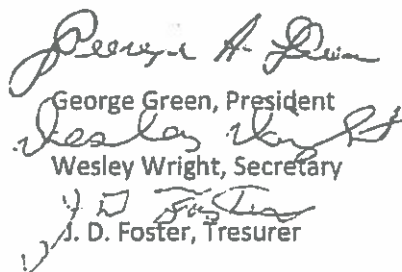 George A. Green
George Green, President
Wesley Wright
Wesley Wright, Secretary
J D Foster
J. D. Foster, Tresurer